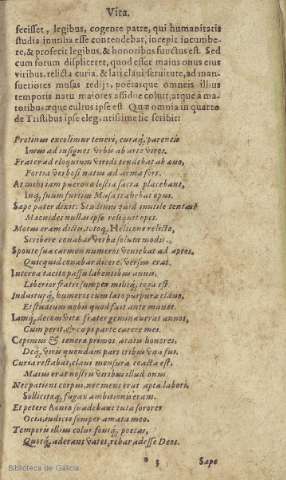 Vita.
fecisset, legibus, cogente patre, qui humanitatis
studia inutilia esse contendebat, incepit incumbe-
re, & profecit legibus, & honoribus functus est. Sed
cum forum displiceret, quod esset maius onus eius
viribus, relicta curia, & lati claui seruitute, ad man-
suetiores musas rediit, poëtasque omneis illius
temporis natu maiores assidue coluit, atque à ma-
ioribus æque cultus ipse est. Quæ omnia in quarto
de Tristibus ipse elegantissime sic scribit:
Protinus excolimur teneri, curaq́; parentis
Imus ad insignes vrbis ab arte viros.
Frater ad eloquium viridi tendebat ab æuo,
Fortia verbosi natus ad arma fori.
At mihi iam puero cœlestia sacra placebant,
Inq́; suum furtim Musa trahebat opus.
Sæpe pater dixit: Studium quid inutile tentas?
Mæonides nullas ipse reliquit opes.
Motus eram dictis, totoq́; Helicone relicto,
Scribere conabar verba soluta modis.
Sponte sua carmen numeros veniebat ad aptos,
Quicquid conabar dicere, versus erat.
Interea tacito passu labentibus annis,
Liberior fratri sumpta mihiq́; toga est.
Induiturq́; humeros cum lato purpura clauo,
Et studium nobis quod fuit ante manet.
Iamq́; decem vitæ frater geminauerat annos,
Cum perit, & cœpi parte carere mei.
Cepimus & teneræ primos ætatis honores:
Deq́; viris quondam pars tribus vna fui.
Curia restabat, claui mensura coacta est:
Maius erat nostris viribus illud onus.
Nec patiens corpus, nec mens erat apta labori,
Sollicitæq́; fugax ambitionis eram.
Et petere Aoniæ suadebant tuta sorores
Otia, iudicio semper amata meo.
Temporis illius colui fouiq́; poëtas,
Quotq́; aderant vates, rebar adesse Deos.
* 3 Sæpe
Biblioteca de Galicia